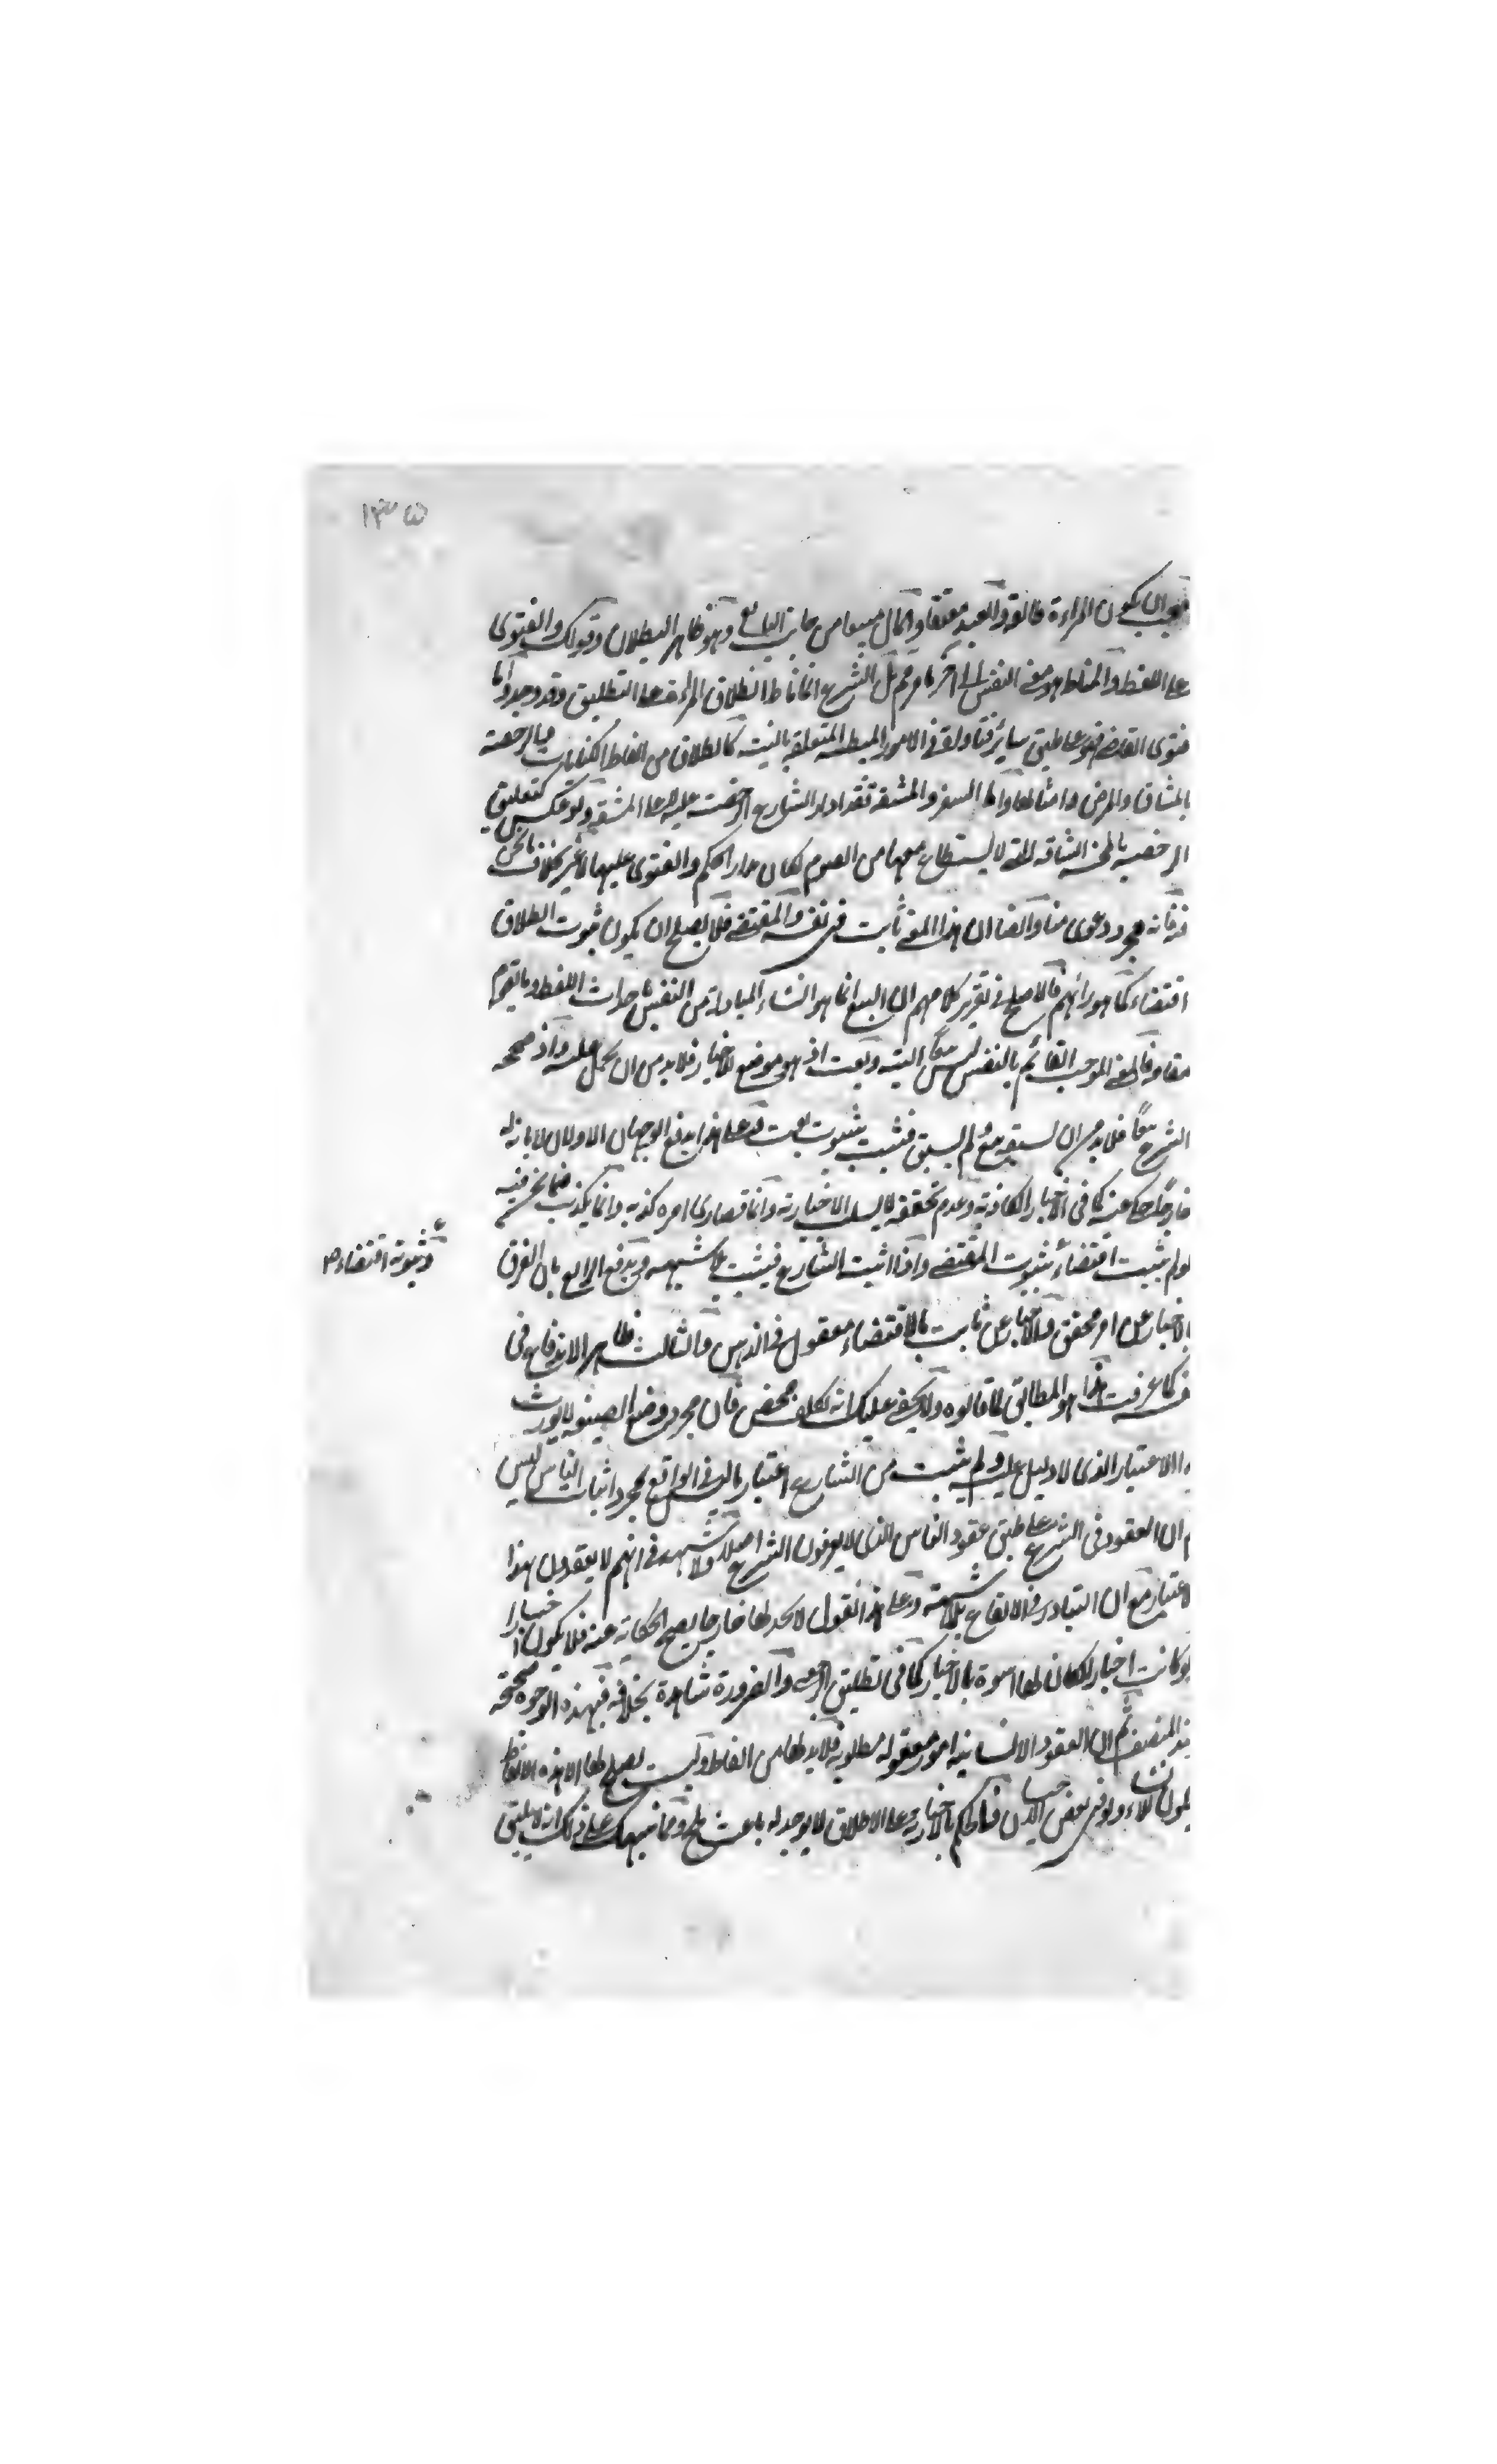 ١٣٥
يكون المراءة طالقة والعبد معتقا والمال مبيعا من جانب البايع وهو ظاهر البطلان وقولك والفتوى
على اللفظ والمناط هو معنى النفس الى اخره بل الشرع انما ناط انطلاق المراءة على التطليق وقد وجد واما
فتوى القاضي فهو على طبق ساير فتاواه في الامور المبطنة المتعلقة بالنية كالطلاق من الفاظ الكنايات
بالمشاق والمرض وامثالها واما السفر والمشقة فقد ادار الشارع الرخصة عليه لا على المشقة ولو عكس كتعليق
الرخصة بالمحنة الشاقة التي لا يستطاع معها من الصوم لكان مدار الحكم والفتوى عليها لا غير بخلاف ما نحن
فيه فانه مجرد دعوى منا وايضا ان هذا المعنى ثابت في نفسه والمقتضى فلا يصلح ان يكون ثبوت الطلاق
اقتضاء كما هو رائهم فالاصلح في تقرير كلامهم ان البيع انما هو انشاء المبادلة من النفس باحداث اللفظ وما يقوم
مقامه فالمعنى الموجب القائم بالنفس ليس بيعا البتة وبعت اذ هو موضع للاخبار فلا بد من ان يحمل عليه واذ صححه
الشرع بيعا فلا بد من ان يسبقه بيع ولم يسبق فيثبت بثبوت بعت وعلى هذا يندفع الوجهان الاولان لانا بان له
خارجا حكى عنه كما في الاخبار الكاذبة وعدم تحققه لا يسلب الاخبارية وانما قصارى امره كذبه وانما يكذب فيما نحن فيه
لو لم يثبت اقتضاء بثبوت المقتضى واذا اثبت الشارع فيثبت بلا شبهة ويندفع الرابع بان الفرق
وثبوته اقتضاء
الاخبار عن امر محقق والاخبار عن ثابت بالاقتضاء معقول في الذهن والثالث ظاهر الاندفاع في
كما عرفت هذا هو المطابق لما قالوه ولا يخفى عليك انه تكلف محض فان مجرد وضع الصيغة لا يورث
الاعتبار الذي لا دليل عليه ولم يثبت من الشارع اعتبار ما ليس في الواقع بمجرد اثبات الناس ليس
ان العقود في الشرع على طبق عقود الناس الذي لا يعرفون الشرع اصلا ولا شبهة في انهم لا يعقدون بهذا
الاعتبار مع ان التبادر في الايقاع بلا شبهة وعلى هذا نقول لا نجد لها خارجا يصح الحكاية عنه فلا يكون اخبارا
لو كانت اخبارا لكان لها اسوة بالاخبار كما في تطليق الرجعي والضرورة شاهدة بخلافه فبهذه الوجوه صحيحة
المنصف ثم ان العقود الانسانية امور معقولة مطلوبة فلا بد لها من الفاظ وليست يصلح لها الا هذه الالفاظ
ولو في بعض الاحيان فالحكم بالاخبارية على الاطلاق لا يوجد له باعث ومما ينبهك على ذلك انه لا يليق